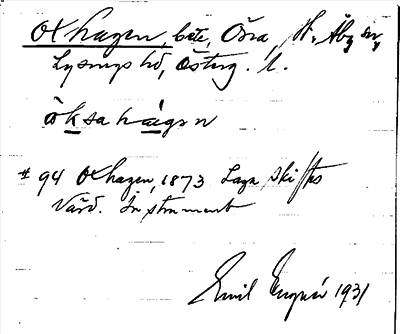 Oxhagen, bete, Össa, St. Åby sn,
Lysings hd, Österg. l.
ȍksahagen
# 94 Oxhagen, 1873 Laga Skiftes
Värd. Instrument
Emil 1931